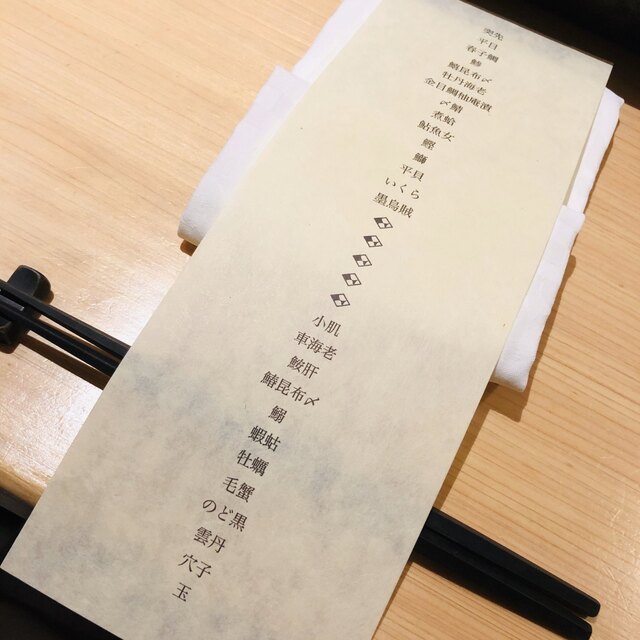 奥先
平目
春子鯛
鯵
鰆昆布〆
牡丹海老
金目鯛柚庵漬
〆鯖
煮蛤
鮎魚女
鰹
鰤
平貝
いくら
墨烏賊
小肌
車海老
鮟肝
鰆昆布〆
鰯
蝦蛄
牡蠣
毛蟹
のど黒
雲丹
穴子
玉